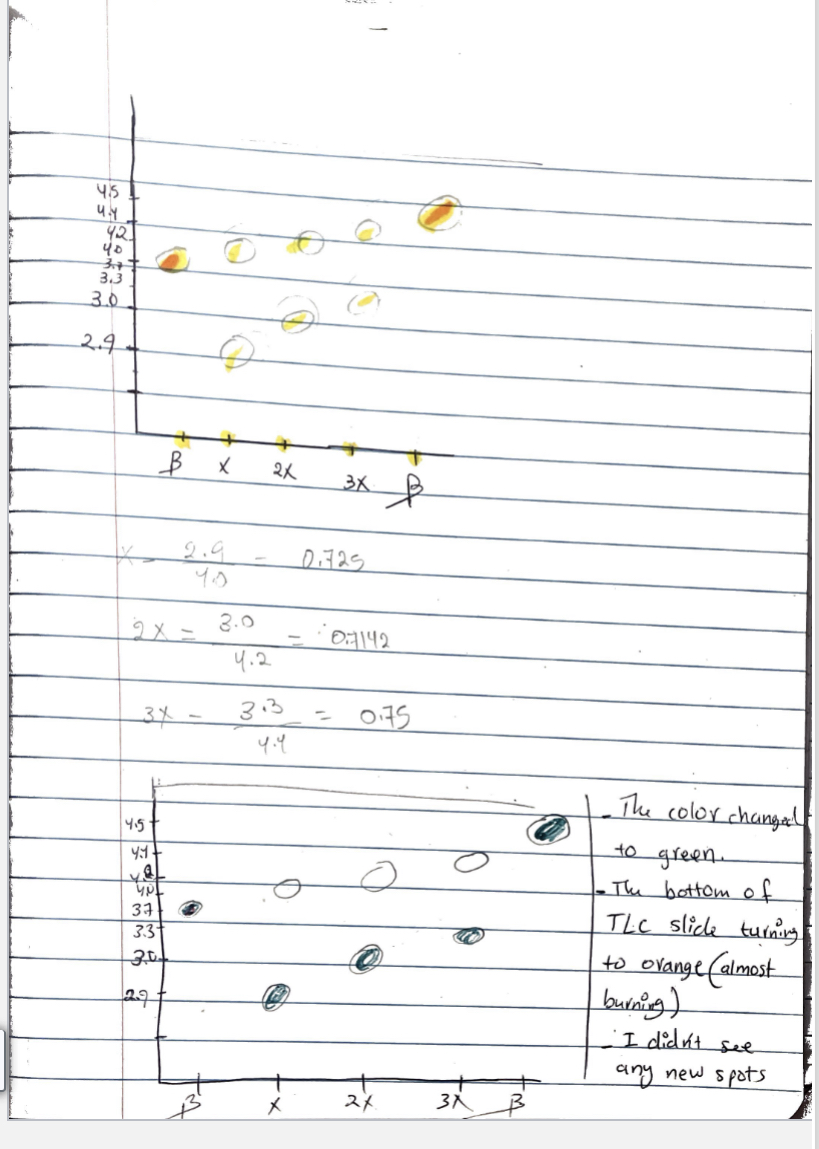 4.5
4.4
4.2
4.0
3.7
3.3
3.0
2.9
β X 2X 3X β
X - 2.9/4.0 - 0.725
2X = 3.0/4.2 = 0.7142
3X - 3.3/4.4 = 0.75
4.5
4.4
4.2
4.0
3.7
3.3
3.0
2.9
β X 2X 3X β
- The color changed
to green.
- The bottom of
TLC slide turning
to orange (almost
burning)
- I didn't see
any new spots